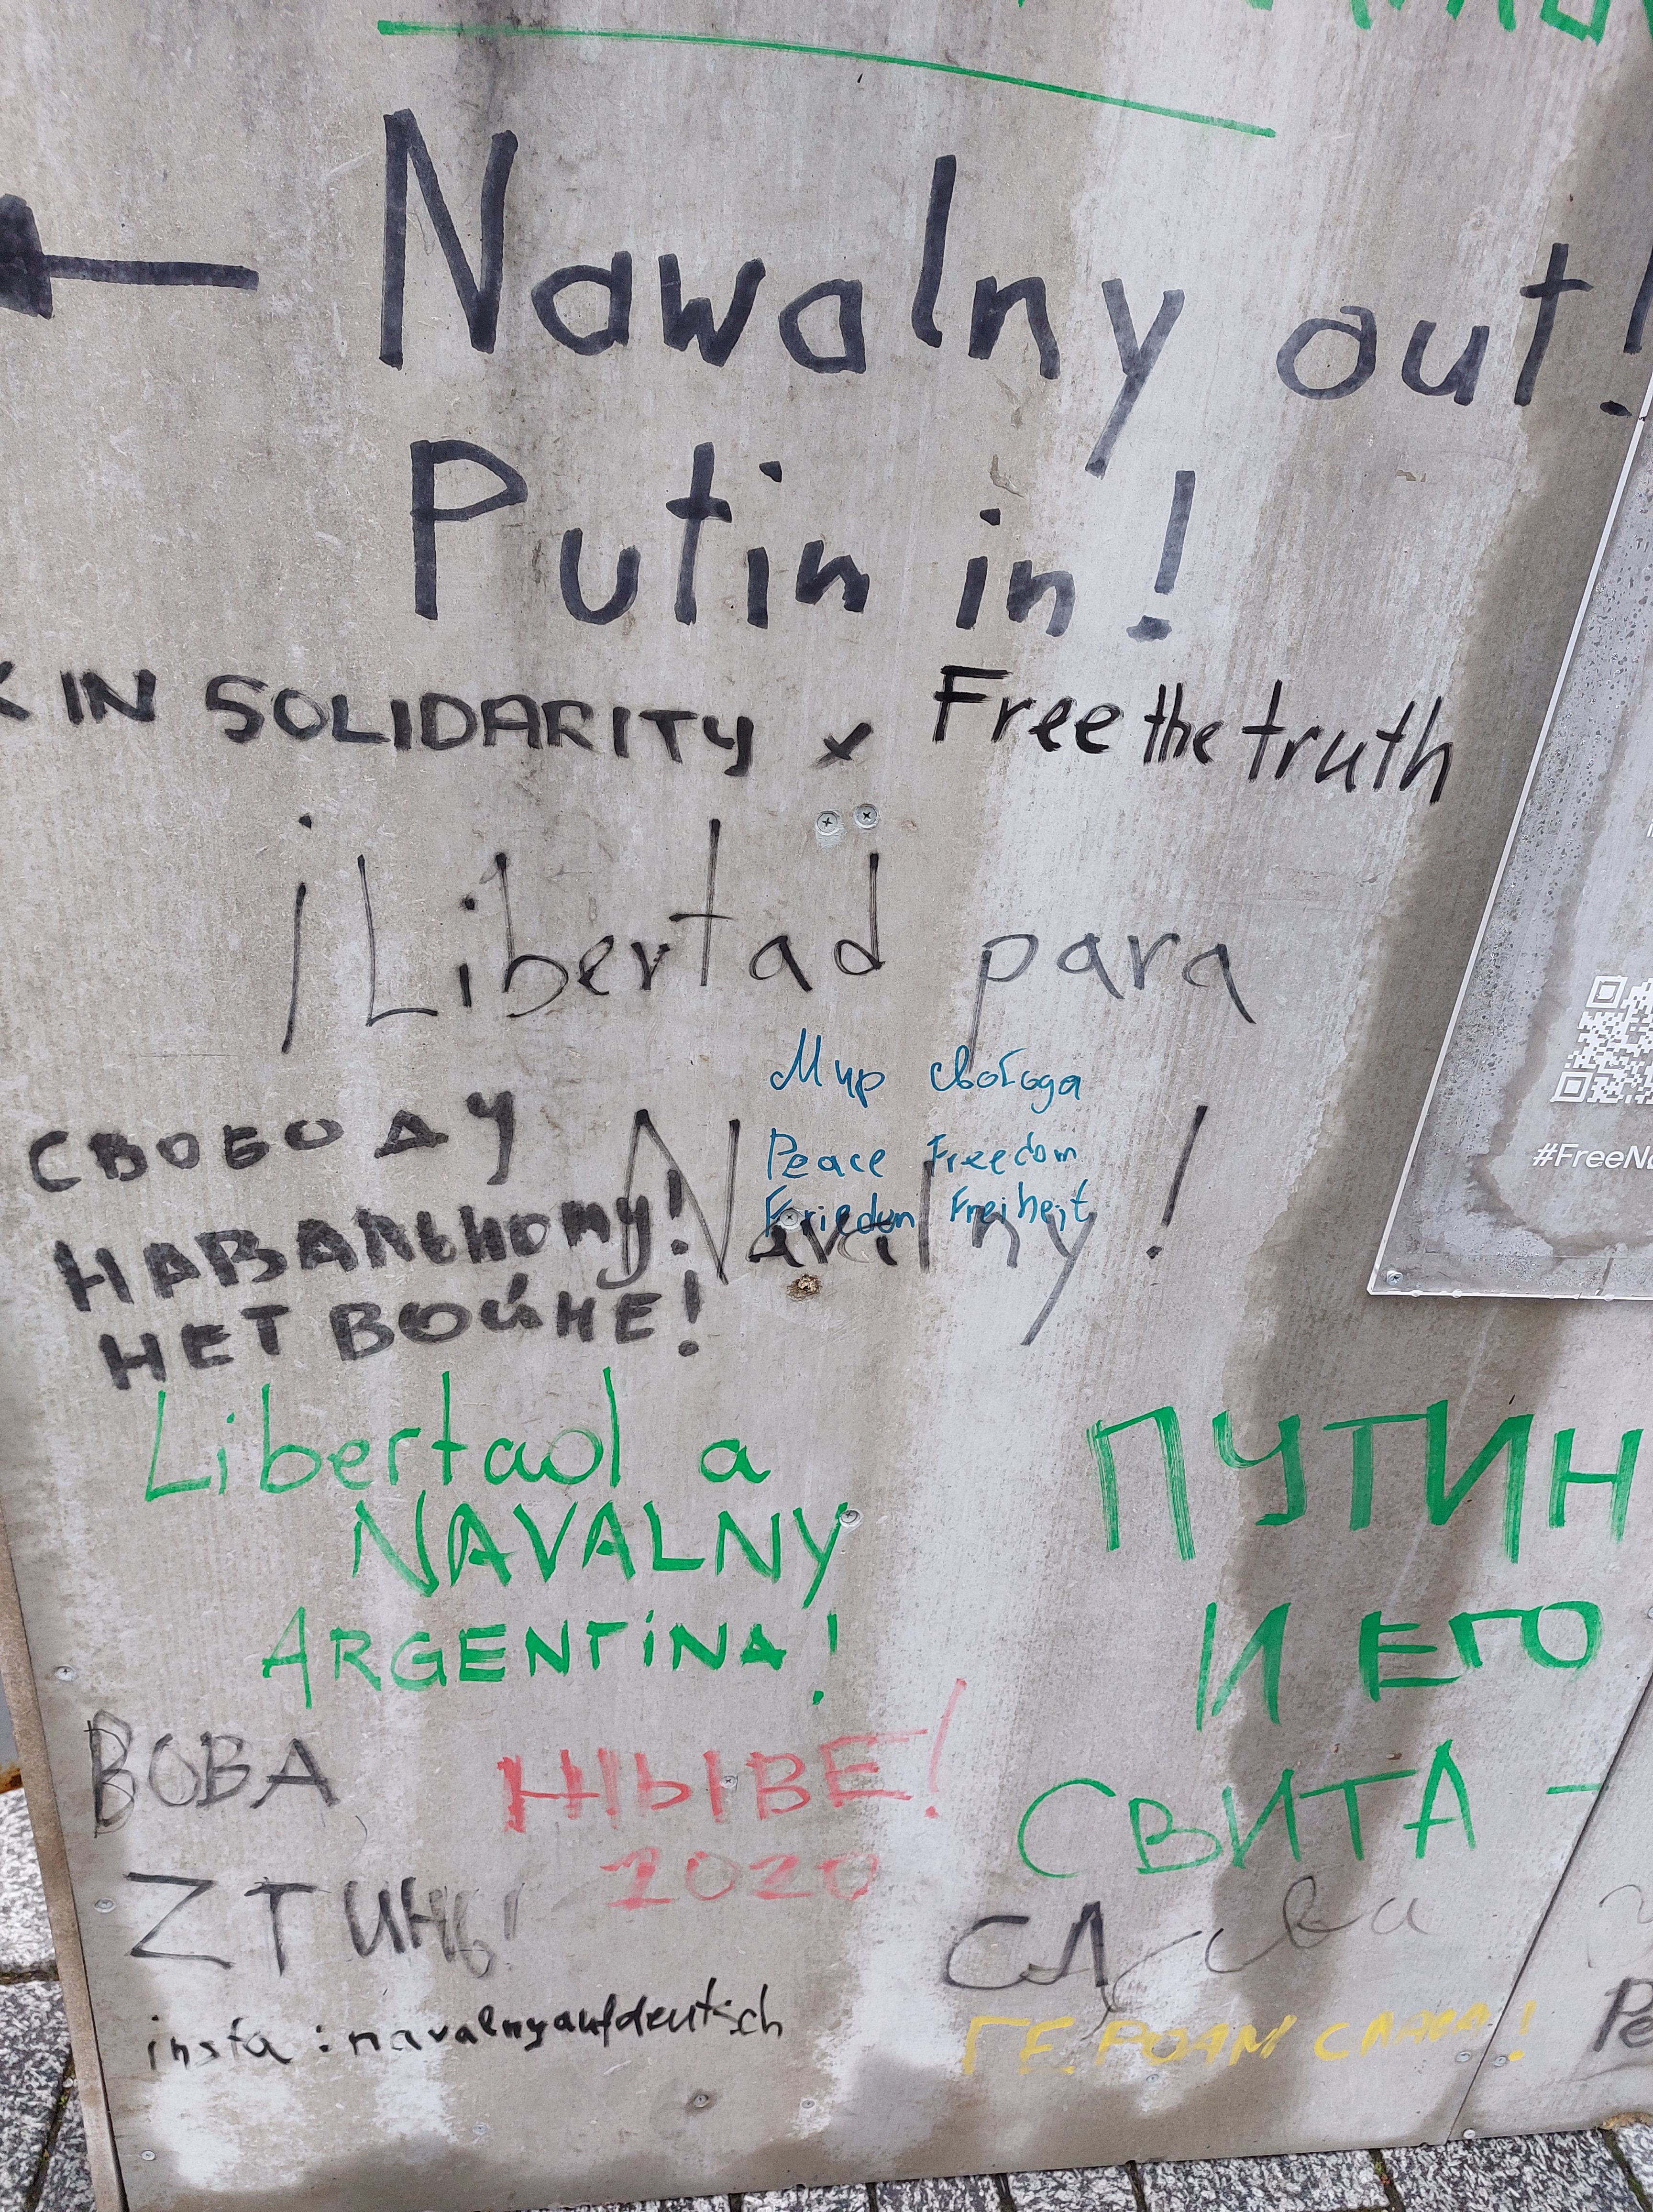 Nawalny out!
Putin in!
IN SOLIDARITY x Free the truth
¡Libertad para
Navalny!
Мир свобода
Peace Freedom
Frieden Freiheit
СВОБОДУ
НАВАЛЬНОМУ!
НЕТ ВОЙНЕ!
Libertad a
NAVALNY
ARGENTINA!
ПУТИН
И ЕГО
СВИТА -
ВОВА
ZТИНЫ
ЖЫВЕ!
2020
Слава
ГЕРОЯМ СЛАВА!
insta: navalnyaufdeutsch
#FreeNa
Pe